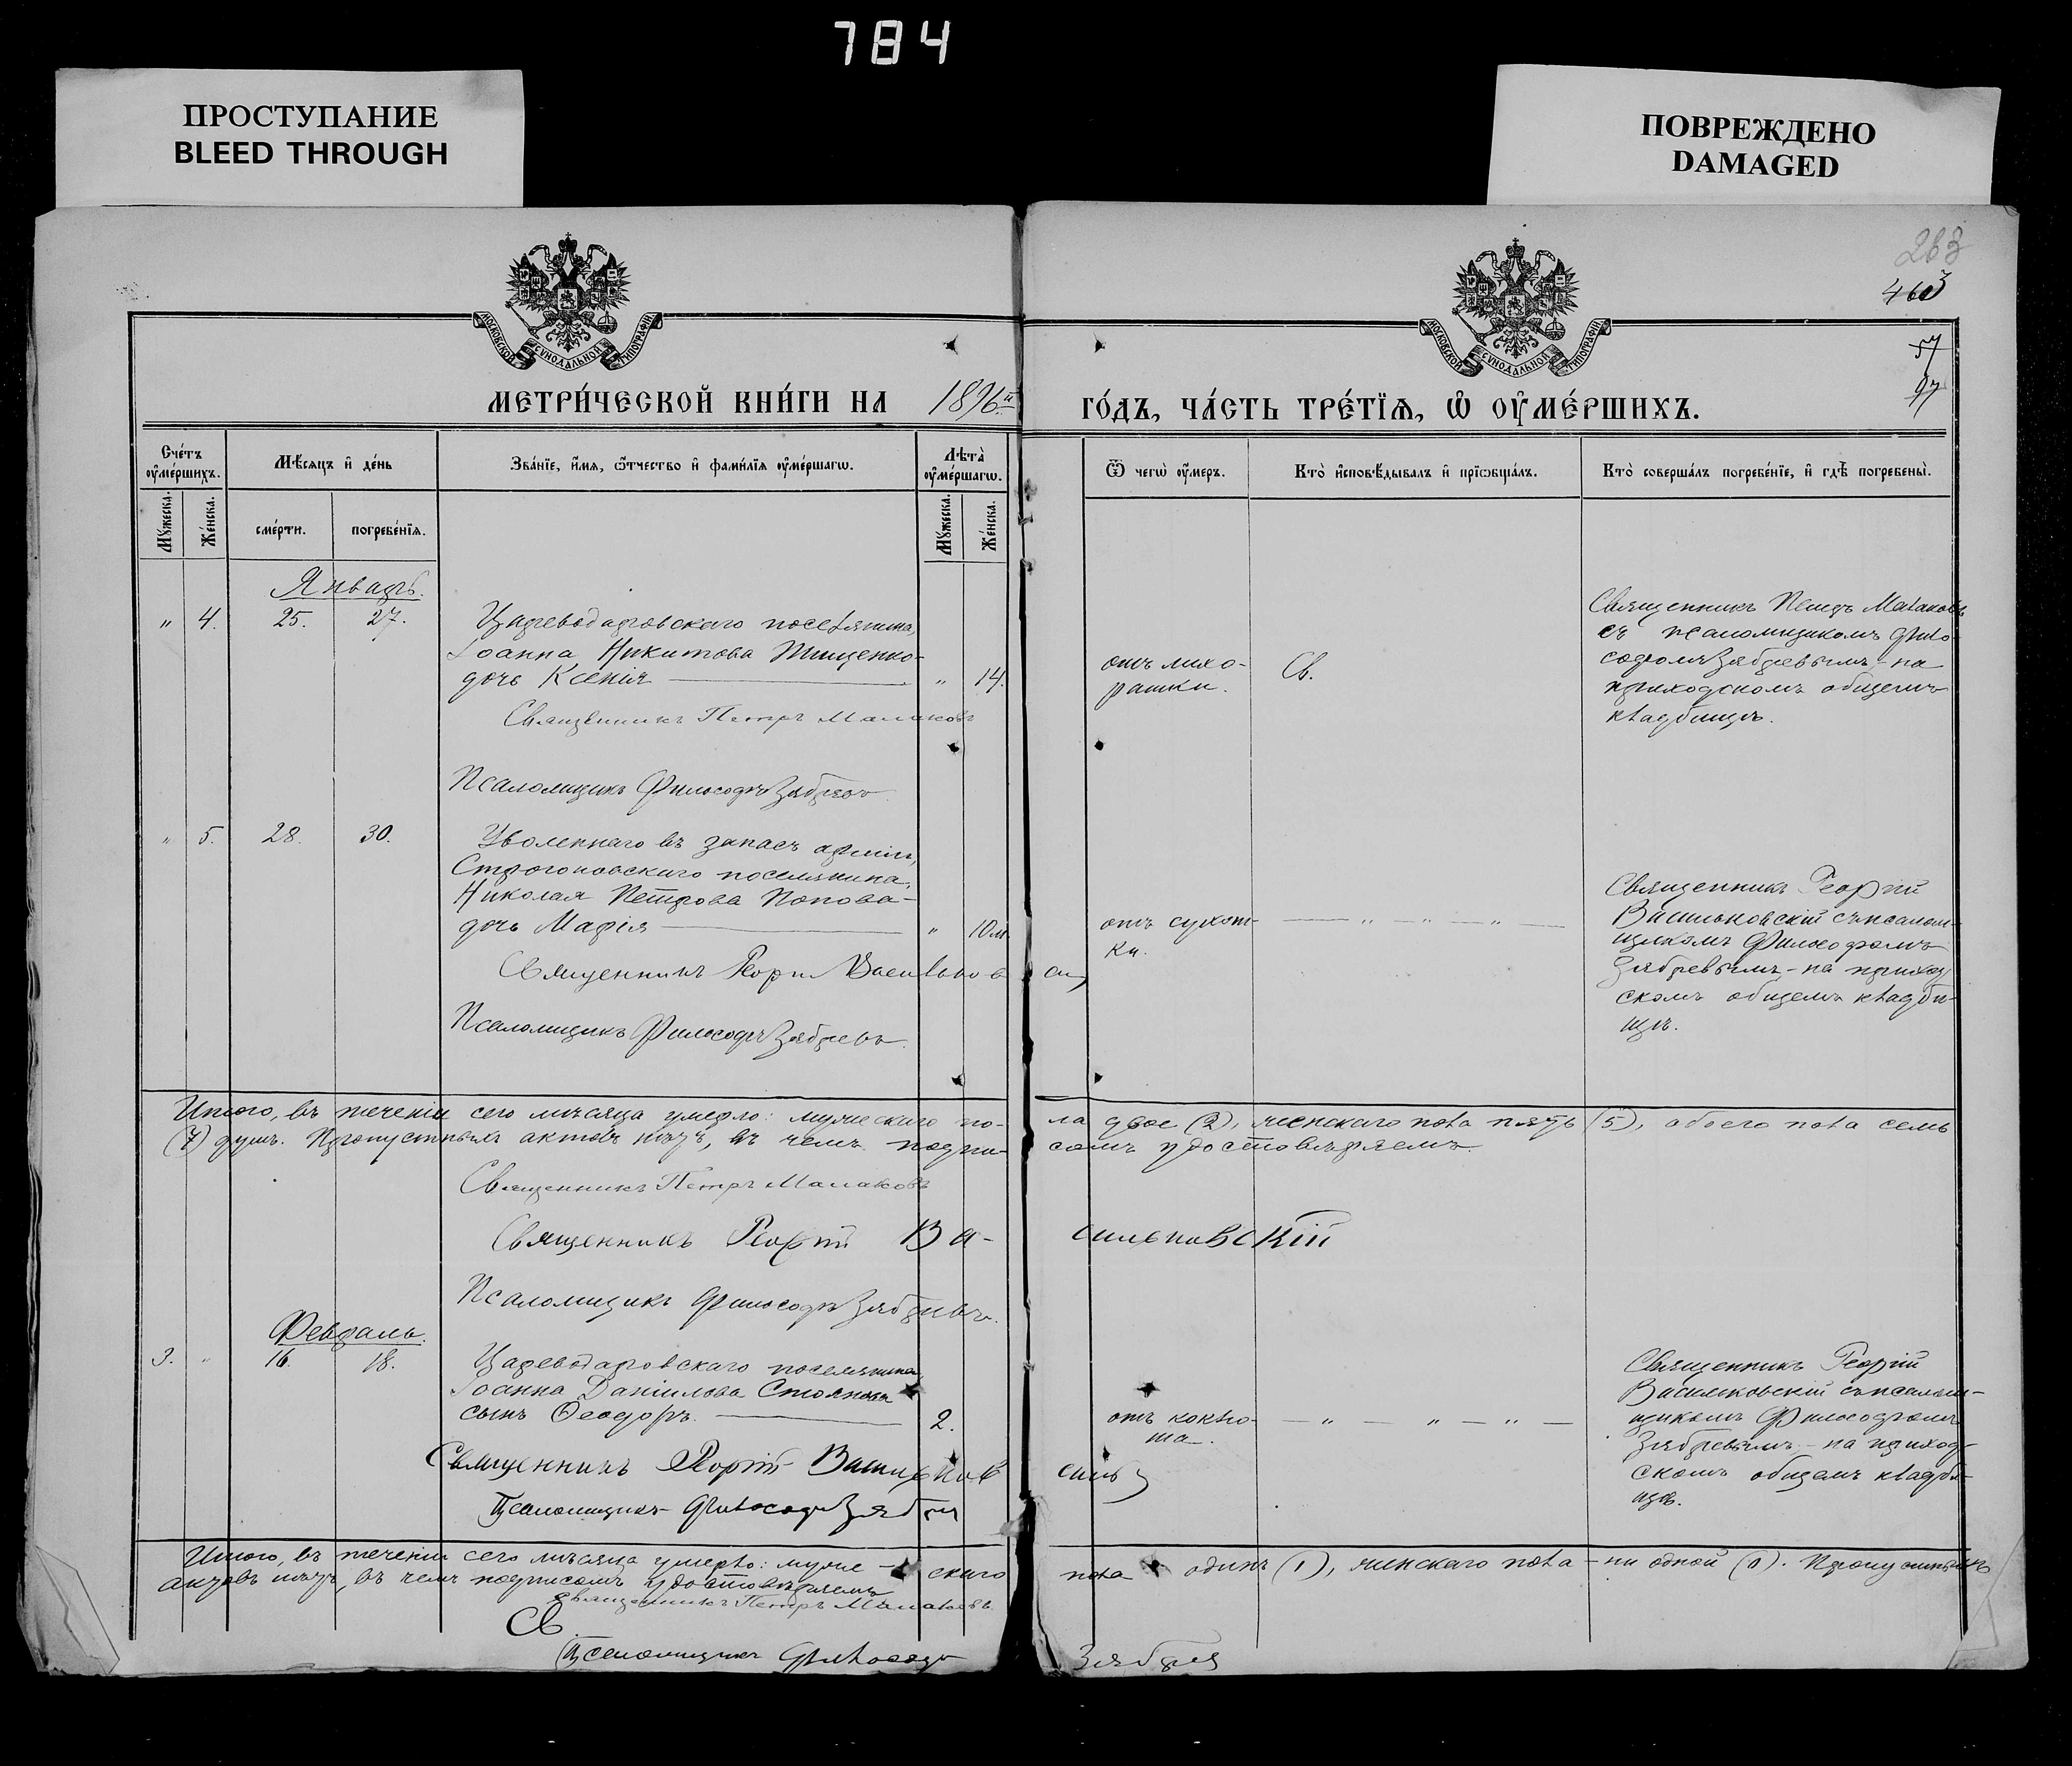 784
ПРОСТУПАНИЕ
BLEED THROUGH
ПОВРЕЖДЕНО
DAMAGED
263
МОСКОВСКОЙ СѴНОДАЛЬНОЙ ТИПОГРАФІИ
МОСКОВСКОЙ СѴНОДАЛЬНОЙ ТИПОГРАФІИ
57
97
МЕТРИ́ЧЕСКОЙ КНИ́ГИ НА 1896й
ГО́ДЪ, ЧА́СТЬ ТРЕ́ТЇѦ, Ѡ҆ ОУ҆МЕ́РШИХЪ.
Сче́тъ оу҆ме́ршихъ.
Мѣ́сѧцъ и҆ де́нь
Зва́нїе, и҆́мѧ, ѻ҆́тчество и҆ фами́лїѧ оу҆ме́ршагѡ.
Лѣ́та оу҆ме́ршагѡ.
Ѿ чегѡ̀ оу҆́меръ.
Кто̀ и҆сповѣ́дывалъ и҆ прїѡбща́лъ.
Кто̀ соверша́лъ погребе́нїе, и҆ гдѣ̀ погребены̀.
Мꙋ́жеска.
Же́нска.
сме́рти.
погребе́нїѧ.
Мꙋ́жеска.
Же́нска.
Январь.
" 4. 25. 27. Царeводаровскаго поселянина,
Іоанна Никитова Тищенко-
дочь Ксенія " 14.
Священникъ Петръ Малаковъ
Псаломщикъ Философъ Зябревъ
отъ лихо-
радки.
Св.
Священникъ Петръ Малаковъ
съ псаломщикомъ Фило-
софомъ Зябревымъ - на
приходскомъ общемъ
кладбищѣ.
" 5. 28. 30. Уволеннаго въ запасъ арміи,
Строгоновскаго поселянина,
Николая Петрова Попова-
дочь Марія " 10 м.
Священникъ Георгій Васильков
Псаломщикъ Философъ Зябревъ.
отъ сухот-
ки.
— " — " — " —
Священникъ Георгій
Васильковскій съ псалом-
щикомъ Философомъ
Зябревымъ - на приход-
скомъ общемъ кладби-
щѣ.
Итого, въ теченіи сего мѣсяца умерло: мужескаго по-
ла двое (2), женскаго пола пять (5), обоего пола семь
(7) душъ. Пропустныхъ актовъ нѣтъ, въ чемъ подпи-
сомъ удостовѣряемъ.
Священникъ Петръ Малаковъ
Священникъ Георгій Ва-
сильковскій
Псаломщикъ Философъ Зябревъ.
Февраль.
3. " 16. 18. Цареводаровскаго поселянина,
Іоанна Даніилова Стоянова
сынъ Ѳеодоръ. 2.
Священникъ Георгій Васильков
Псаломщикъ Философъ Зябрев
отъ коклю-
ша.
— " — " — " —
Священникъ Георгій
Васильковскій съ псалом-
щикомъ Философомъ
Зябревымъ - на приход-
скомъ общемъ кладби-
щѣ.
Итого, въ теченіи сего мѣсяца умерло: муже-скаго
пола одинъ (1), женскаго пола - ни одной (0). Пропустныхъ
актовъ нѣтъ, въ чемъ подписомъ удостовѣряемъ
Священникъ Петръ Малаковъ
Св.
Псаломщикъ Философъ
Зябрев